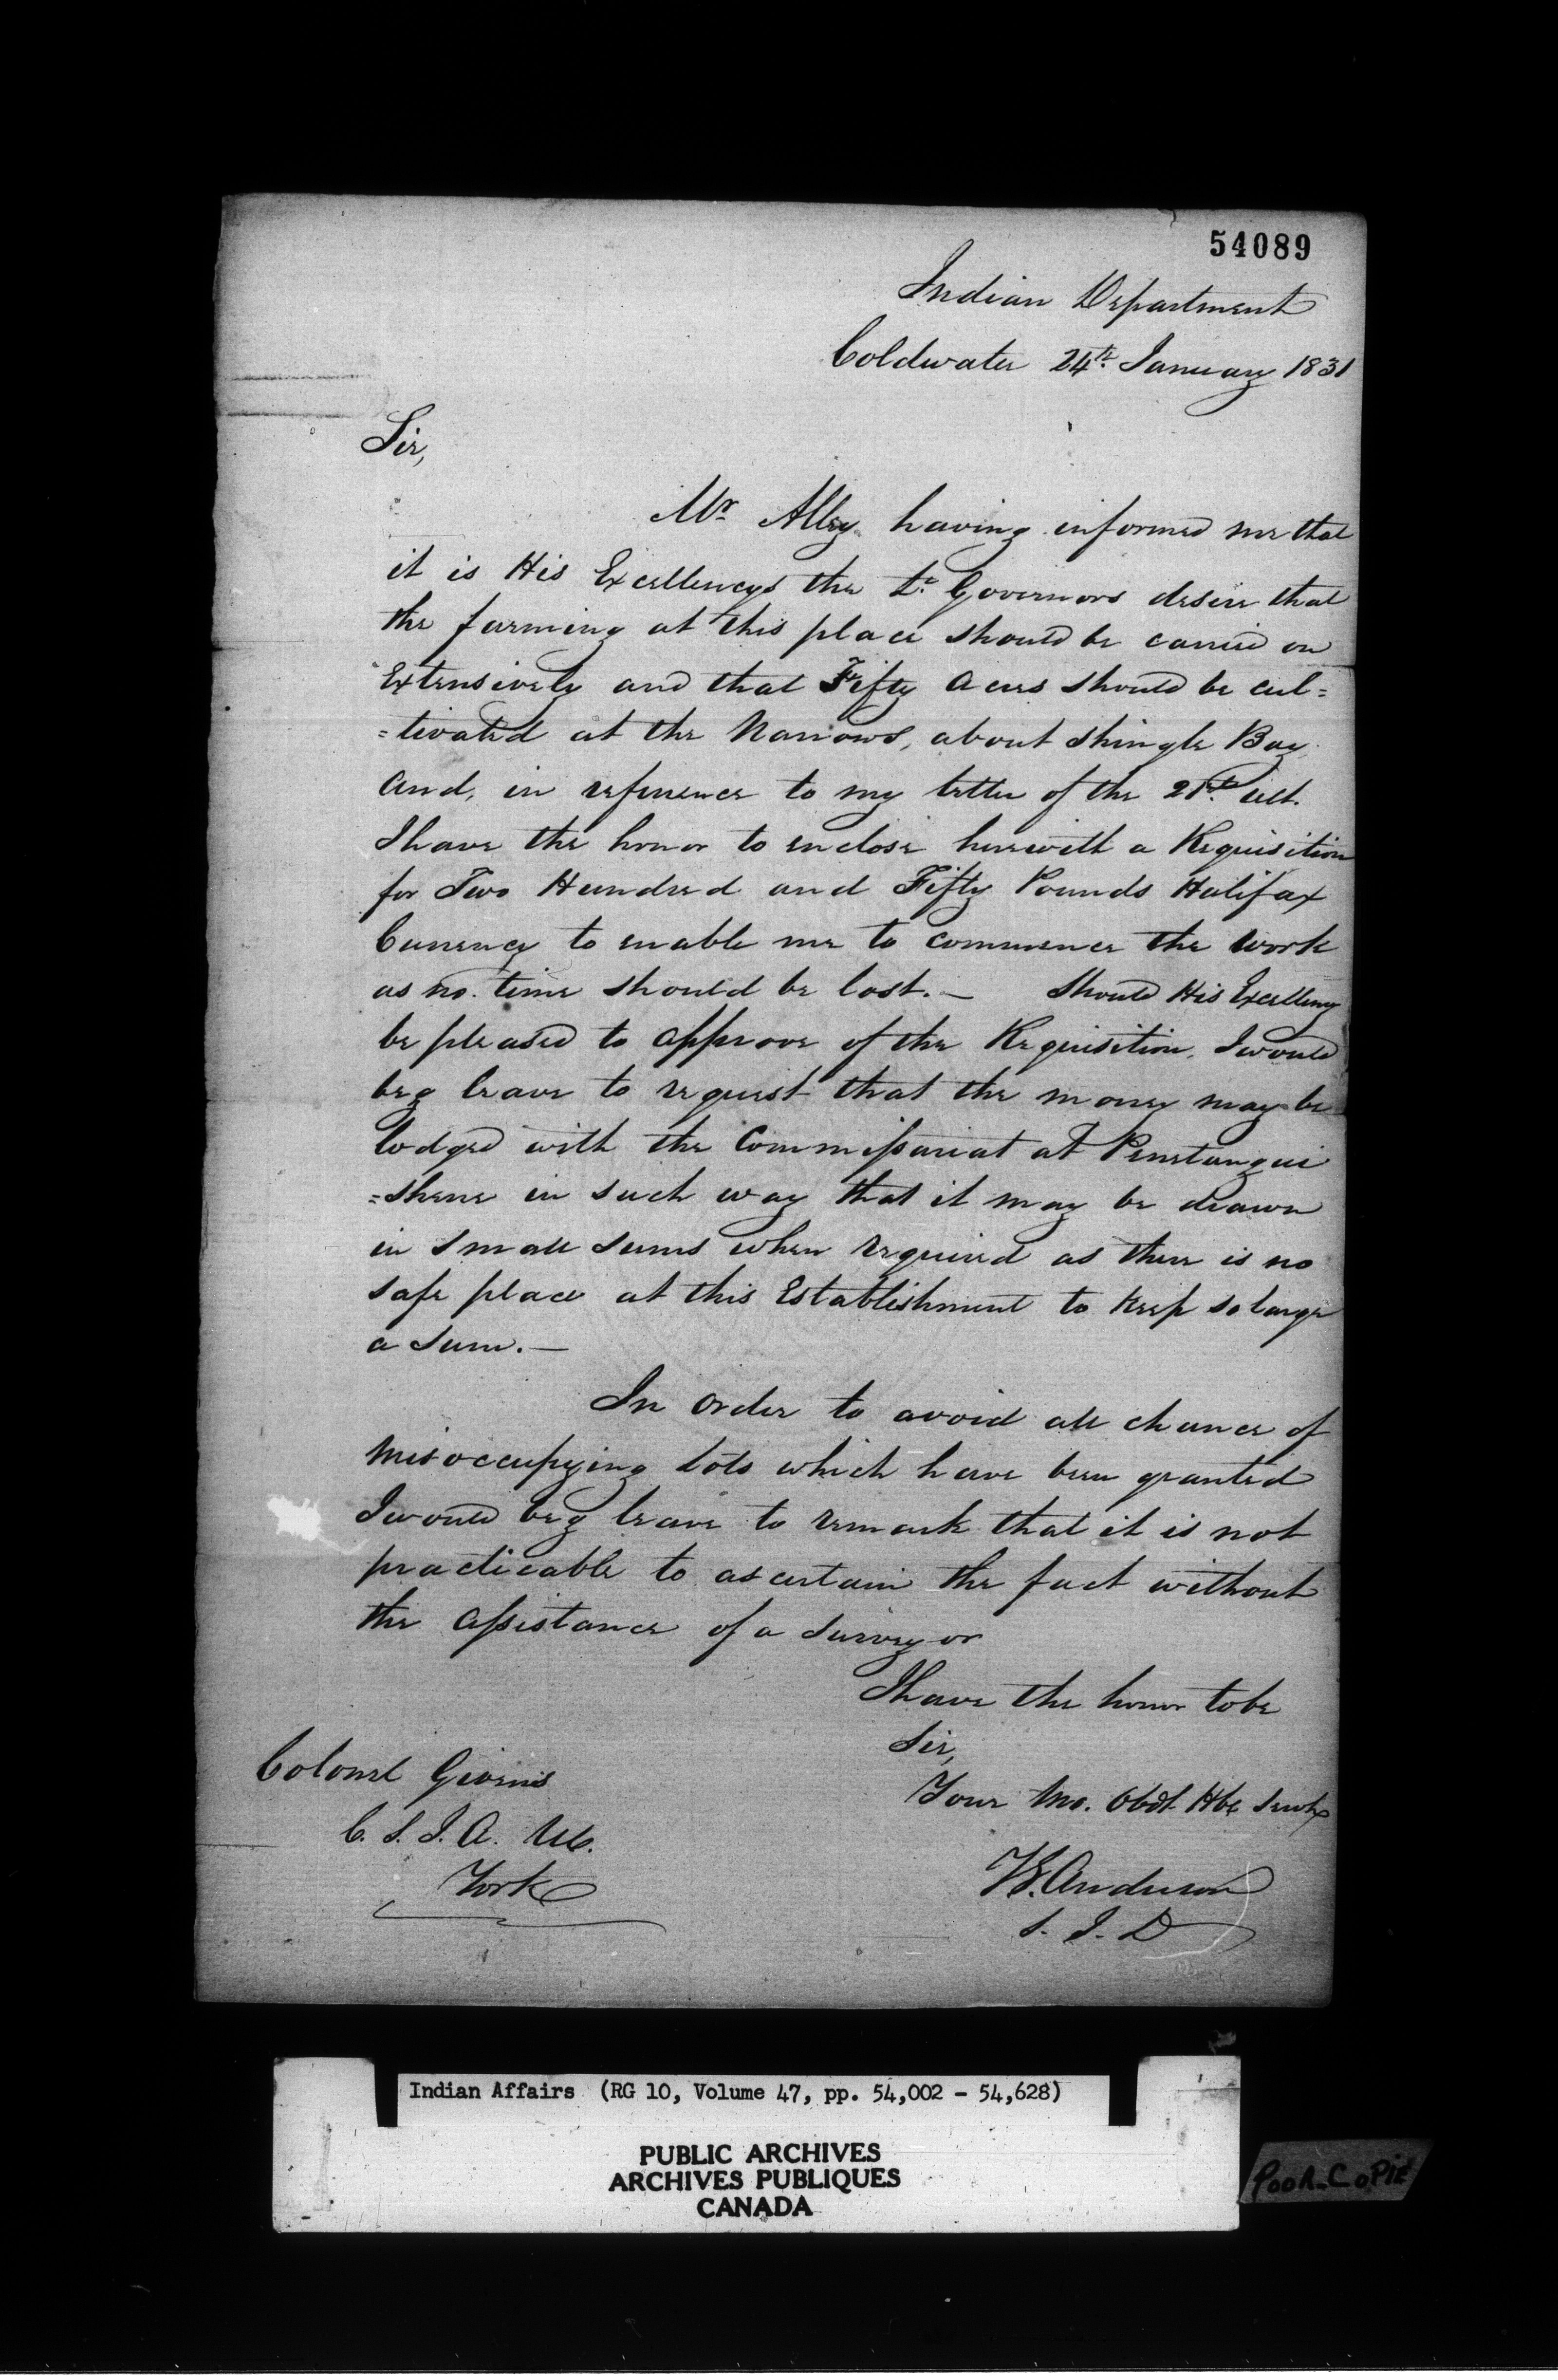 54089
Indian Department
Coldwater 24th January 1831
Sir,
Mr Alley having informed me that
it is His Excellencys the Lt Governors desire that
the farming at this place should be carried on
Extensively and that Fifty Acres should be cul=
=tivated at the Narrows, about Shingle Bay
and, in reference to my letter of the 21st ult.
I have the honor to enclose herewith a Requisition
for Two Hundred and Fifty Pounds Halifax
Currency to enable me to commence the work
as no time should be lost. — Should His Excellency
be pleased to approve of the Requisition, I would
beg leave to request that the money may be
lodged with the Commissariat at Penetangui
=shene in such way that it may be drawn
in small sums when required as there is no
safe place at this Establishment to keep so large
a sum. —
In order to avoid all chance of
misoccupying lots which have been granted
I would beg leave to remark that it is not
practicable to ascertain the fact without
the assistance of a Surveyor
I have the honor to be
Sir,
Your Mo. Obdt Hbe Servt
Colonel Givins
C. S. I. A. U C.
York
T G. Anderson
S. I. D
Indian Affairs (RG 10, Volume 47, pp. 54,002 - 54,628)
PUBLIC ARCHIVES
ARCHIVES PUBLIQUES
CANADA
POOR-COPIE